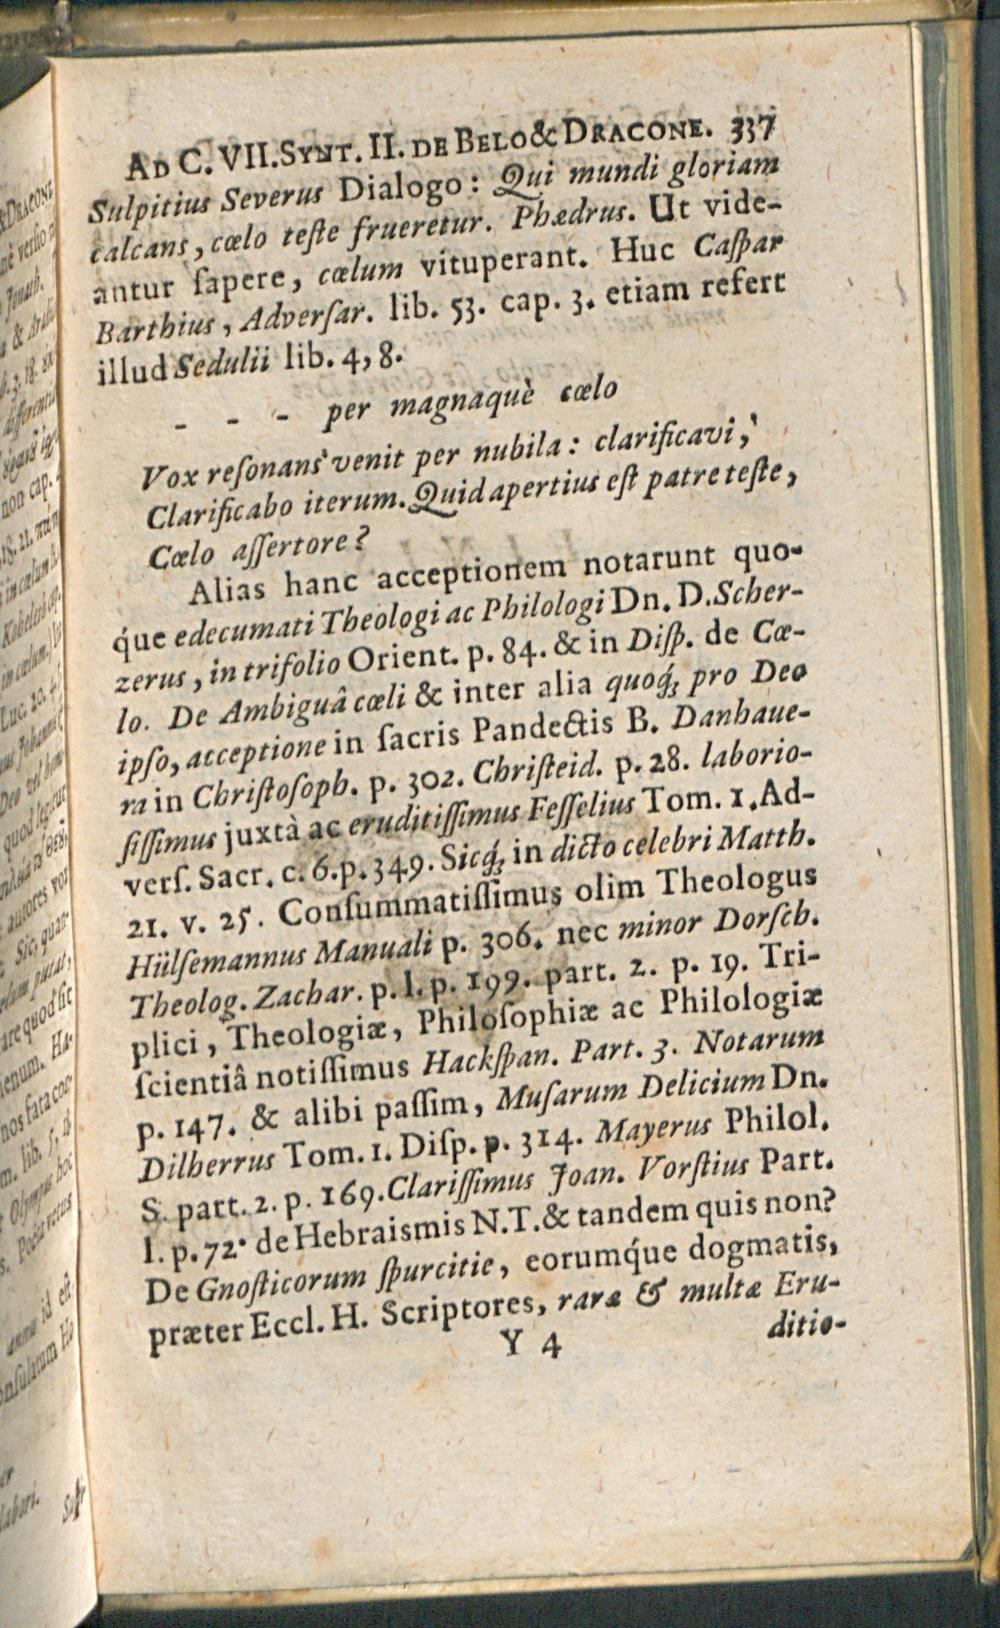 AD C. VII. SYNT. II. DE BELO & DRACONE. 337
Sulpitius Severus Dialogo: Qui mundi gloriam
calcans, cœlo teſte frueretur. Phædrus. Ut vide-
antur ſapere, cœlum vituperant. Huc Caſpar
Barthius, Adverſar. lib. 53. cap. 3. etiam refert
illud Sedulii lib. 4, 8.
- - - per magnaquè cœlo
Vox reſonans venit per nubila: clarificavi,
Clarificabo iterum. Quid apertius eſt patre teſte,
Cœlo aſſertore?
Alias hanc acceptionem notarunt quo-
q́ue edecumati Theologi ac Philologi Dn. D. Scher-
zerus, in trifolio Orient. p. 84. & in Diſp. de Cœ-
lo. De Ambiguâ cœli & inter alia quoq́; pro Deo
ipſo, acceptione in ſacris Pandectis B. Danhaue-
ra in Chriſtoſoph. p. 302. Chriſteid. p. 28. laborio-
ſiſſimus juxtà ac eruditiſſimus Feſſelius Tom. 1. Ad-
verſ. Sacr. c. 6. p. 349. Sicq́; in dicto celebri Matth.
21. v. 25. Conſummatiſſimus olim Theologus
Hülſemannus Manuali p. 306. nec minor Dorſch.
Theolog. Zachar. p. l. p. 199. part. 2. p. 19. Tri-
plici, Theologiæ, Philoſophiæ ac Philologiæ
ſcientiâ notiſſimus Hackſpan. Part. 3. Notarum
p. 147. & alibi paſſim, Muſarum Delicium Dn.
Dilherrus Tom. 1. Diſp. p. 314. Mayerus Philol.
S. part. 2. p. 169. Clariſſimus Joan. Vorſtius Part.
l. p. 72. de Hebraismis N. T. & tandem quis non?
De Gnoſticorum ſpurcitie, eorumq́ue dogmatis,
præter Eccl. H. Scriptores, raræ & multæ Eru-
Y 4 ditio-